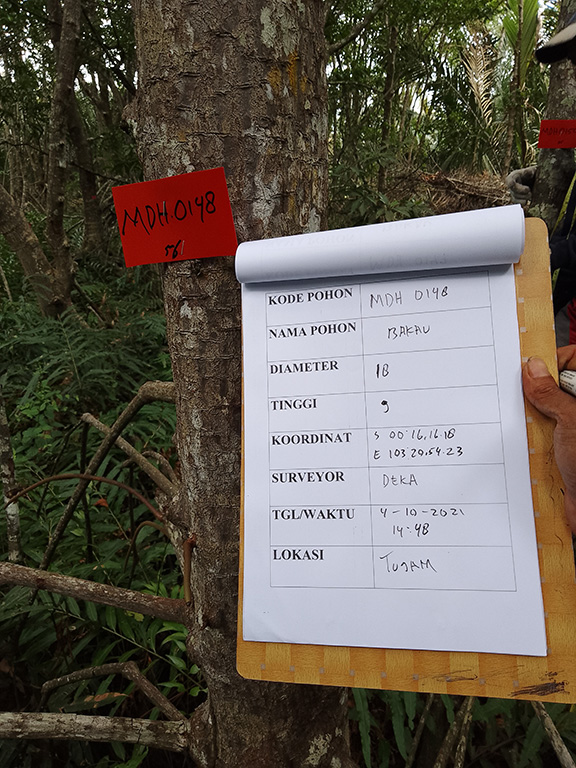 MDH.0148
56/
KODE POHON MDH 0148
NAMA POHON BAKAU
DIAMETER 18
TINGGI 9
KOORDINAT S 00°16.16.18
E 103°29.54.23
SURVEYOR DEKA
TGL/WAKTU 4-10-2021
14:48
LOKASI